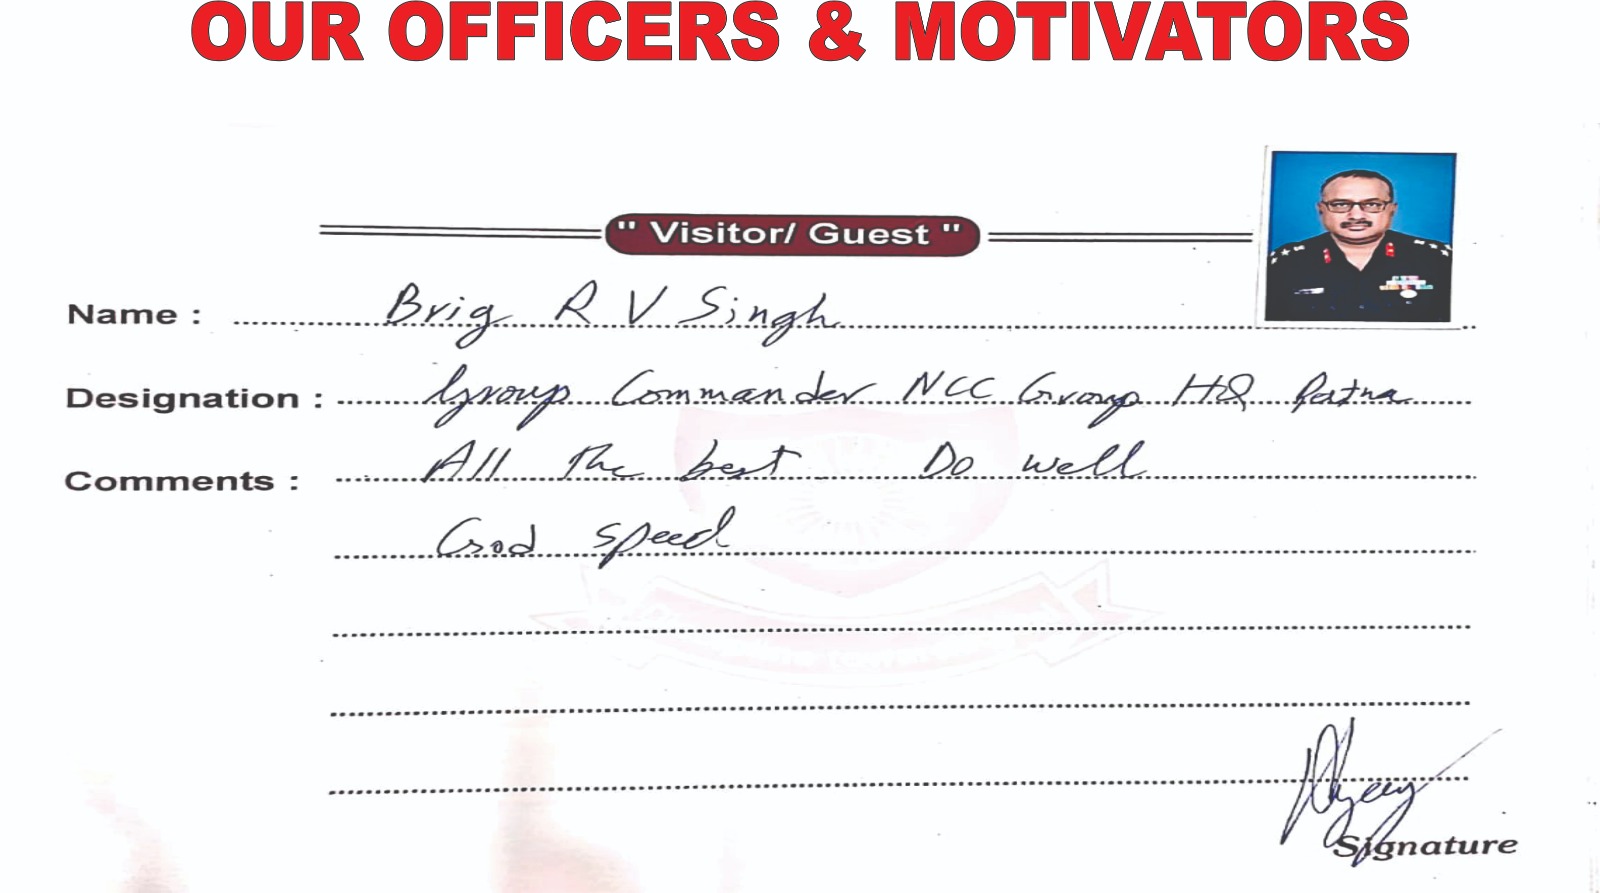 OUR OFFICERS & MOTIVATORS
" Visitor/ Guest "
Name : Brig R V Singh
Designation : Group Commander NCC Group HQ Patna
Comments : All the best Do well
God speed
Signature